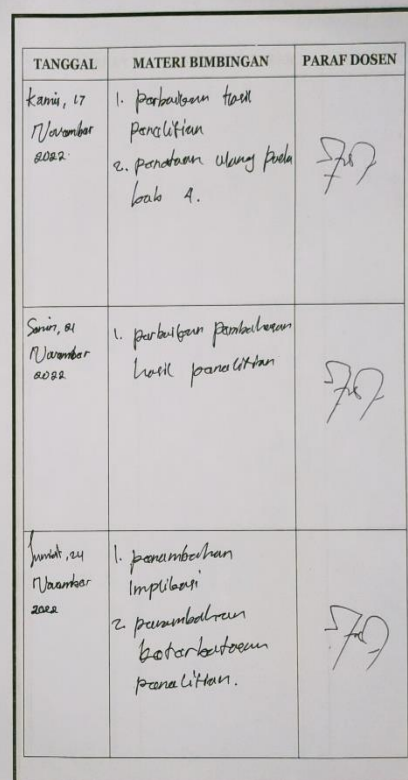 TANGGAL MATERI BIMBINGAN PARAF DOSEN
Kamis, 17
November
2022.
1. perbaikan hasil
Penelitian
2. penataan ulang pada
bab 4.
Senin, 21
November
2022
1. perbaikan pembahasan
hasil penelitian
Jumat, 24
November
2022
1. penambahan
Implikasi
2. penambahan
keterbatasan
penelitian.